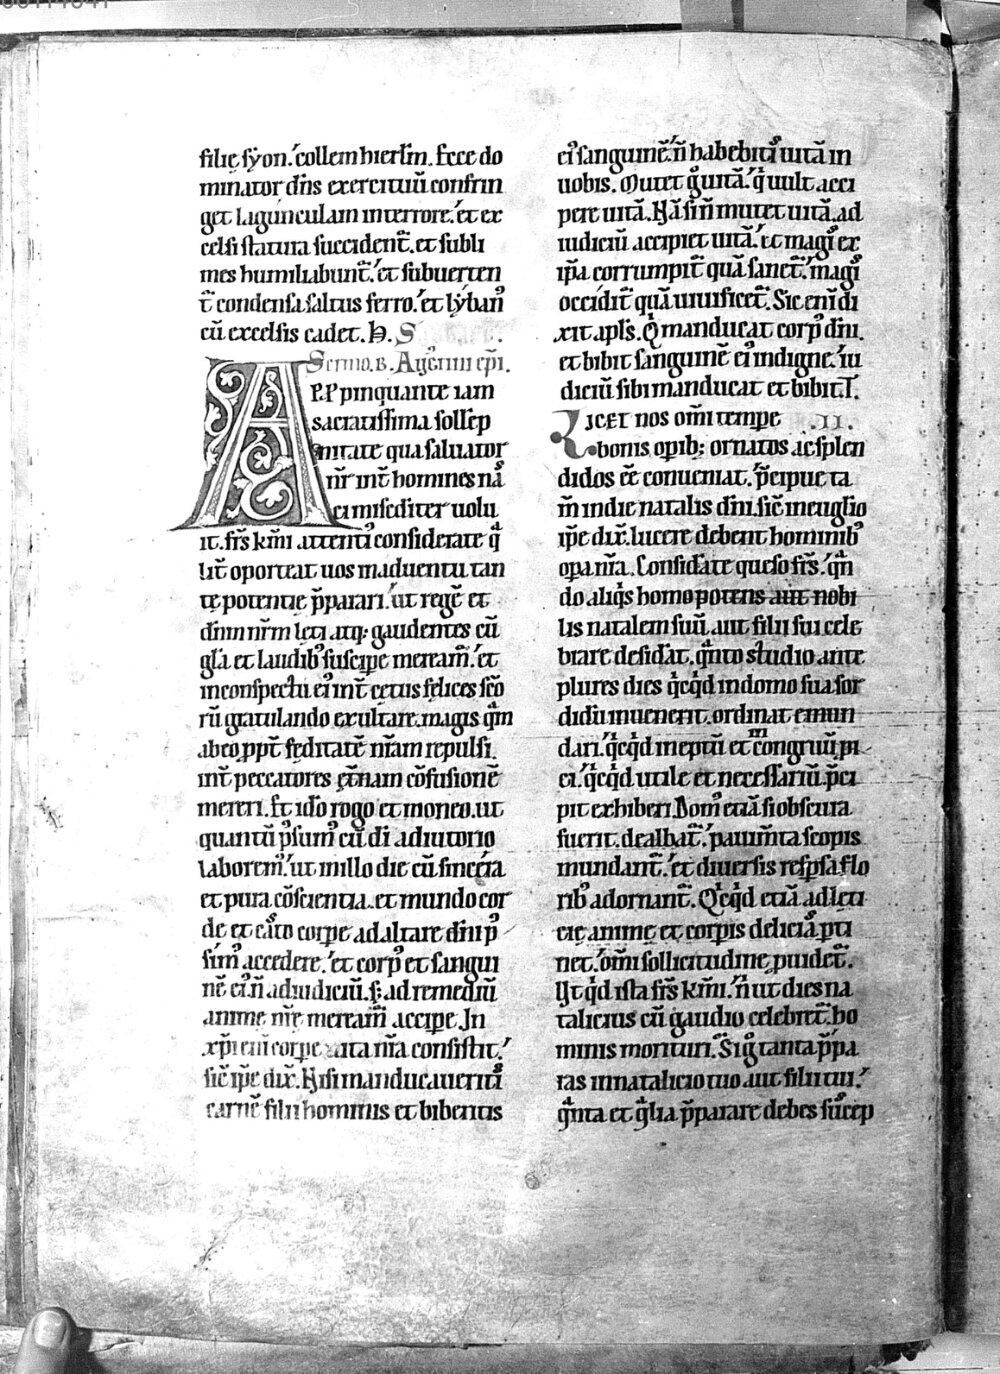 filię sẏon.ʼ collem hierłm. Ecce do
minator dn̄s exercituū confrin
get lagunculam in terrore.ʼ et ex
celsi statura succident̄. et subli
mes humiliabunt̄.ʼ et subuerten
t̄ condensa saltus ferro.ʼ et lẏbanꝰ
cū excelsis cadet. h. S
Sermo. B. Augꝰtini ep̄i.
APPpinquante iam
sacratissima sollēp
nitate qua saluator
nr̄ int̄ homines nā
ci misęditer uolu
it. frs̄ km̄i attenti considerate qͣ
lit̄ oporteat uos in aduentu tan
tę potentię p̄parari.ʼ ut regē et
dn̄m nr̄m lęti atq; gaudentes cū
gła et laudibꝰ suscipe meream̄.ʼ et
in conspectu eiꝰ int̄ cętus felices sc̄o
rū gratulando exultare. magis qͣm
ab eo ppt̄ feditatē nr̄am repulsi.
int̄ peccatores et̄nam cōfusionē
mereri. Et ido rogo et moneo. ut
quantū p̄sumꝰ cū di adiutorio
laborem̄.ʼ ut in illo die cū sincera
et pura cōscientia. et mundo cor
de et casto corpe ad altare dn̄i pꝰ
sim̄ accedere.ʼ et corpꝰ et sangui
nē eiꝰ n̄ ad iudiciū. s; ad remediū
anime nr̄e meream̄ accipe. In
xp̄i eni corpe uita nr̄a consistit.ʼ
sic̄ ip̄e dix̄. Nisi manducaueritꝭ
carnē filii hominis et biberitis
eiꝰ sanguinē.ʼ n̄ habebitꝭ uitā in
uobis. Mutet gͦ uitā.ʼ qͥ uult acci
pere uitā. Nā si n̄ mutet uitā. ad
iudiciū accipiet uitā.ʼ et magꝭ ex
ip̄a corrumpit̄ quā sanet̄.ʼ magꝭ
occidit̄ quā uiuificet̄. Sic eni di
xit apłs. Qͥ manducat corpꝰ dn̄i.
et bibit sanguinē eiꝰ indigne.ʼ iu
diciū sibi manducat et bibit. I.
LICET nos om̄i tempe .II.
bonis opib; ornatos ac splen
didos ēē conueniat. p̄cipue ta
m̄ in die natalis dn̄i. sic̄ in euglio
ip̄e dix̄. lucere debent hominibꝰ
opa nr̄a. Consid̄ate queso frs̄.ʼ qͣn
do aliqͥs homo potens aut nobi
lis natalem suū. aut filii sui cele
brare desid̄at. qͣnto studio ante
plures dies qͥcqͥd in domo sua sor
didū inuenerit. ordinat emun
dari.ʼ qͥcqͥd ineptū et incongruū pi
ci.ʼ qͥcqͥd utile et necessariū. p̄ci
pit exhiberi. Domꝰ etiā si obscura
fuerit. dealbat̄.ʼ pauim̄ta scopis
mundant̄.ʼ et diuersis resp̄sa flo
ribꝰ adornant̄. Qͥcqͥd etiā ad leti
cię anime et corpis deliciā pti
net.ʼ om̄i sollicitudine puidet̄.
Ut qͥd ista frs̄ km̄i.ʼ n̄ ut dies na
talicius cū gaudio celebret̄. ho
minis morituri.ʼ Si gͦ tanta p̄pa
ras in natalicio tuo aut filii tui.ʼ
qͣnta et qͣlia p̄parare debes suscep